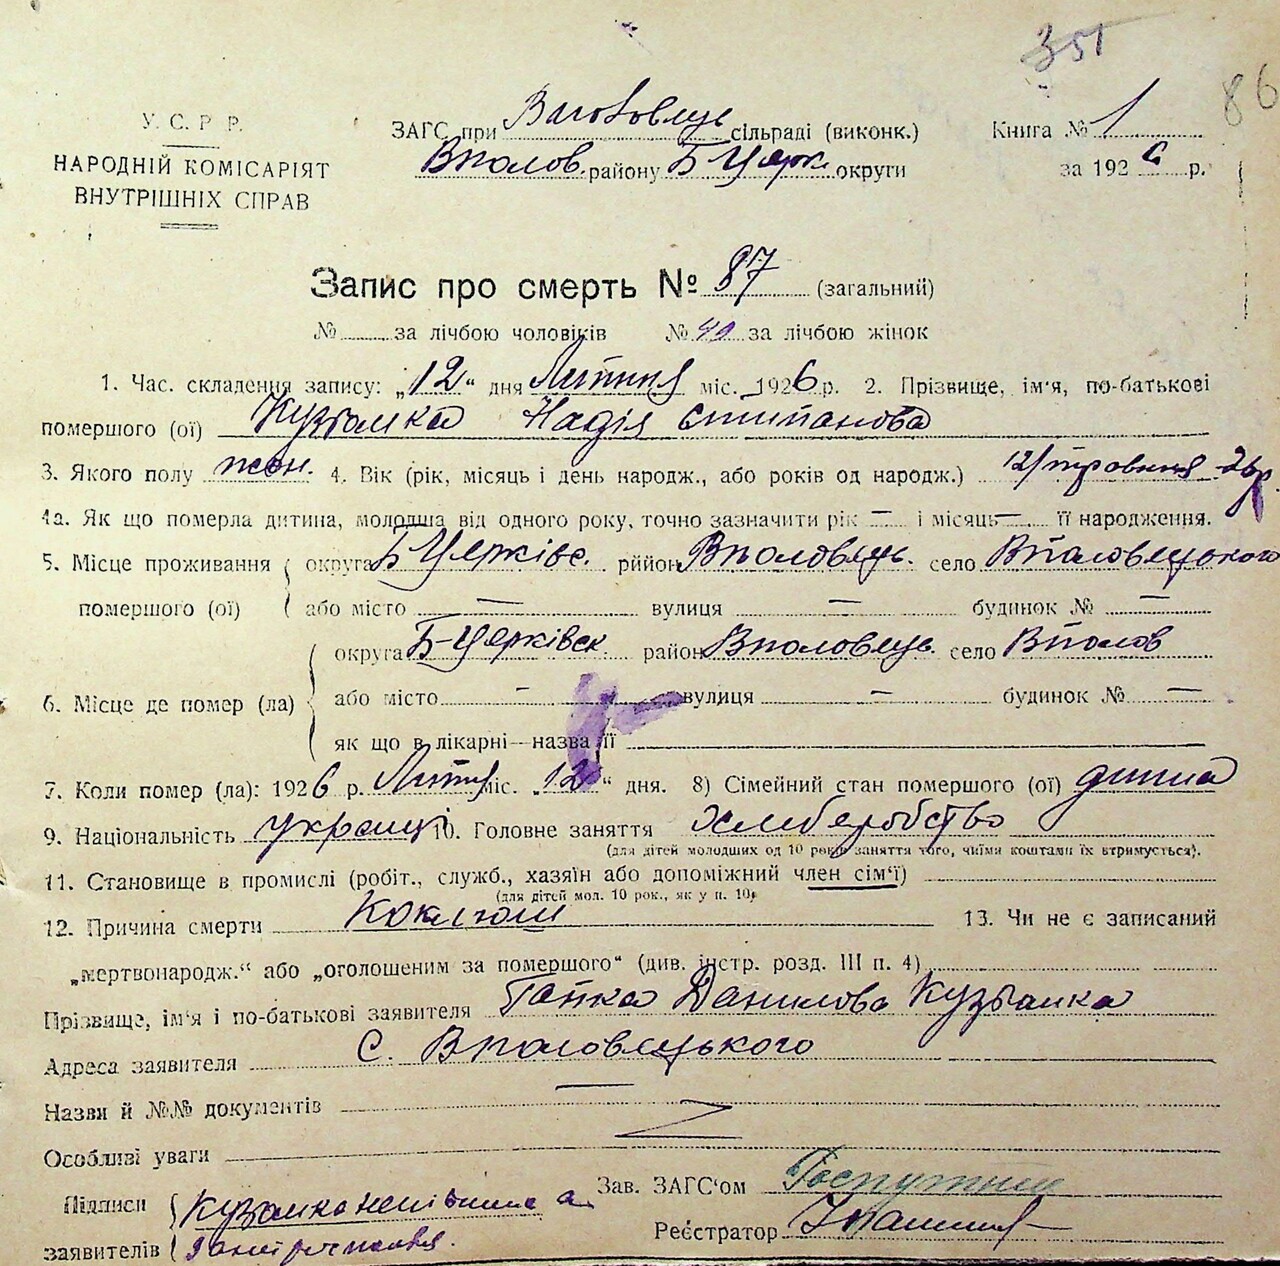 351
86
У. С. Р. Р.
НАРОДНІЙ КОМІСАРІЯТ
ВНУТРІШНІХ СПРАВ
ЗАГС при сільраді (виконк.)
Вполов. району Б Церк. округи
Книга № 1
за 1926 р.
Запис про смерть № 87 (загальний)
№ за лічбою чоловіків № 40 за лічбою жінок
1. Час. складення запису: „12“ дня Липня міс. 1926 р. 2. Прізвище, ім'я, по-батькові
помершого (ої) Кузьмка Надія Степанова
3. Якого полу жон. 4. Вік (рік, місяць і день народж., або років од народж.) 12/травння 26р.
4а. Як що померла дитина, молодша від одного року, точно зазначити рік — і місяць — її народження.
5. Місце проживання округа Б Церківс. рййон Вполовець. село Вполовецького
помершого (ої) або місто — вулиця — будинок № —
округа Б-Церківск. район Вполовець. село Вполов
6. Місце де помер (ла) або місто — вулиця — будинок № —
як що в лікарні—назва її
7. Коли помер (ла): 1926 р. Липня міс. „12“ дня. 8) Сімейний стан помершого (ої) дитина
9. Національність україн 10. Головне заняття Хлеборобство
(для дітей молодших од 10 років заняття того, чиїми коштами їх втримується).
11. Становище в промислі (робіт., служб., хазяїн або допоміжний член сім'ї)
(для дітей мол. 10 рок., як у п. 10)
12. Причина смерти Коклюш 13. Чи не є записаний
„мертвонародж.“ або „оголошеним за помершого“ (див. інстр. розд. III п. 4)
Прізвище, ім'я і по-батькові заявителя Гапка Данилова Кузьмка
Адреса заявителя с. Вполовецького
Назви й №№ документів —
Особливі уваги
Зав. ЗАГС'ом
Підписи Кузьмка неписьмена а
Реєстратор
заявителів